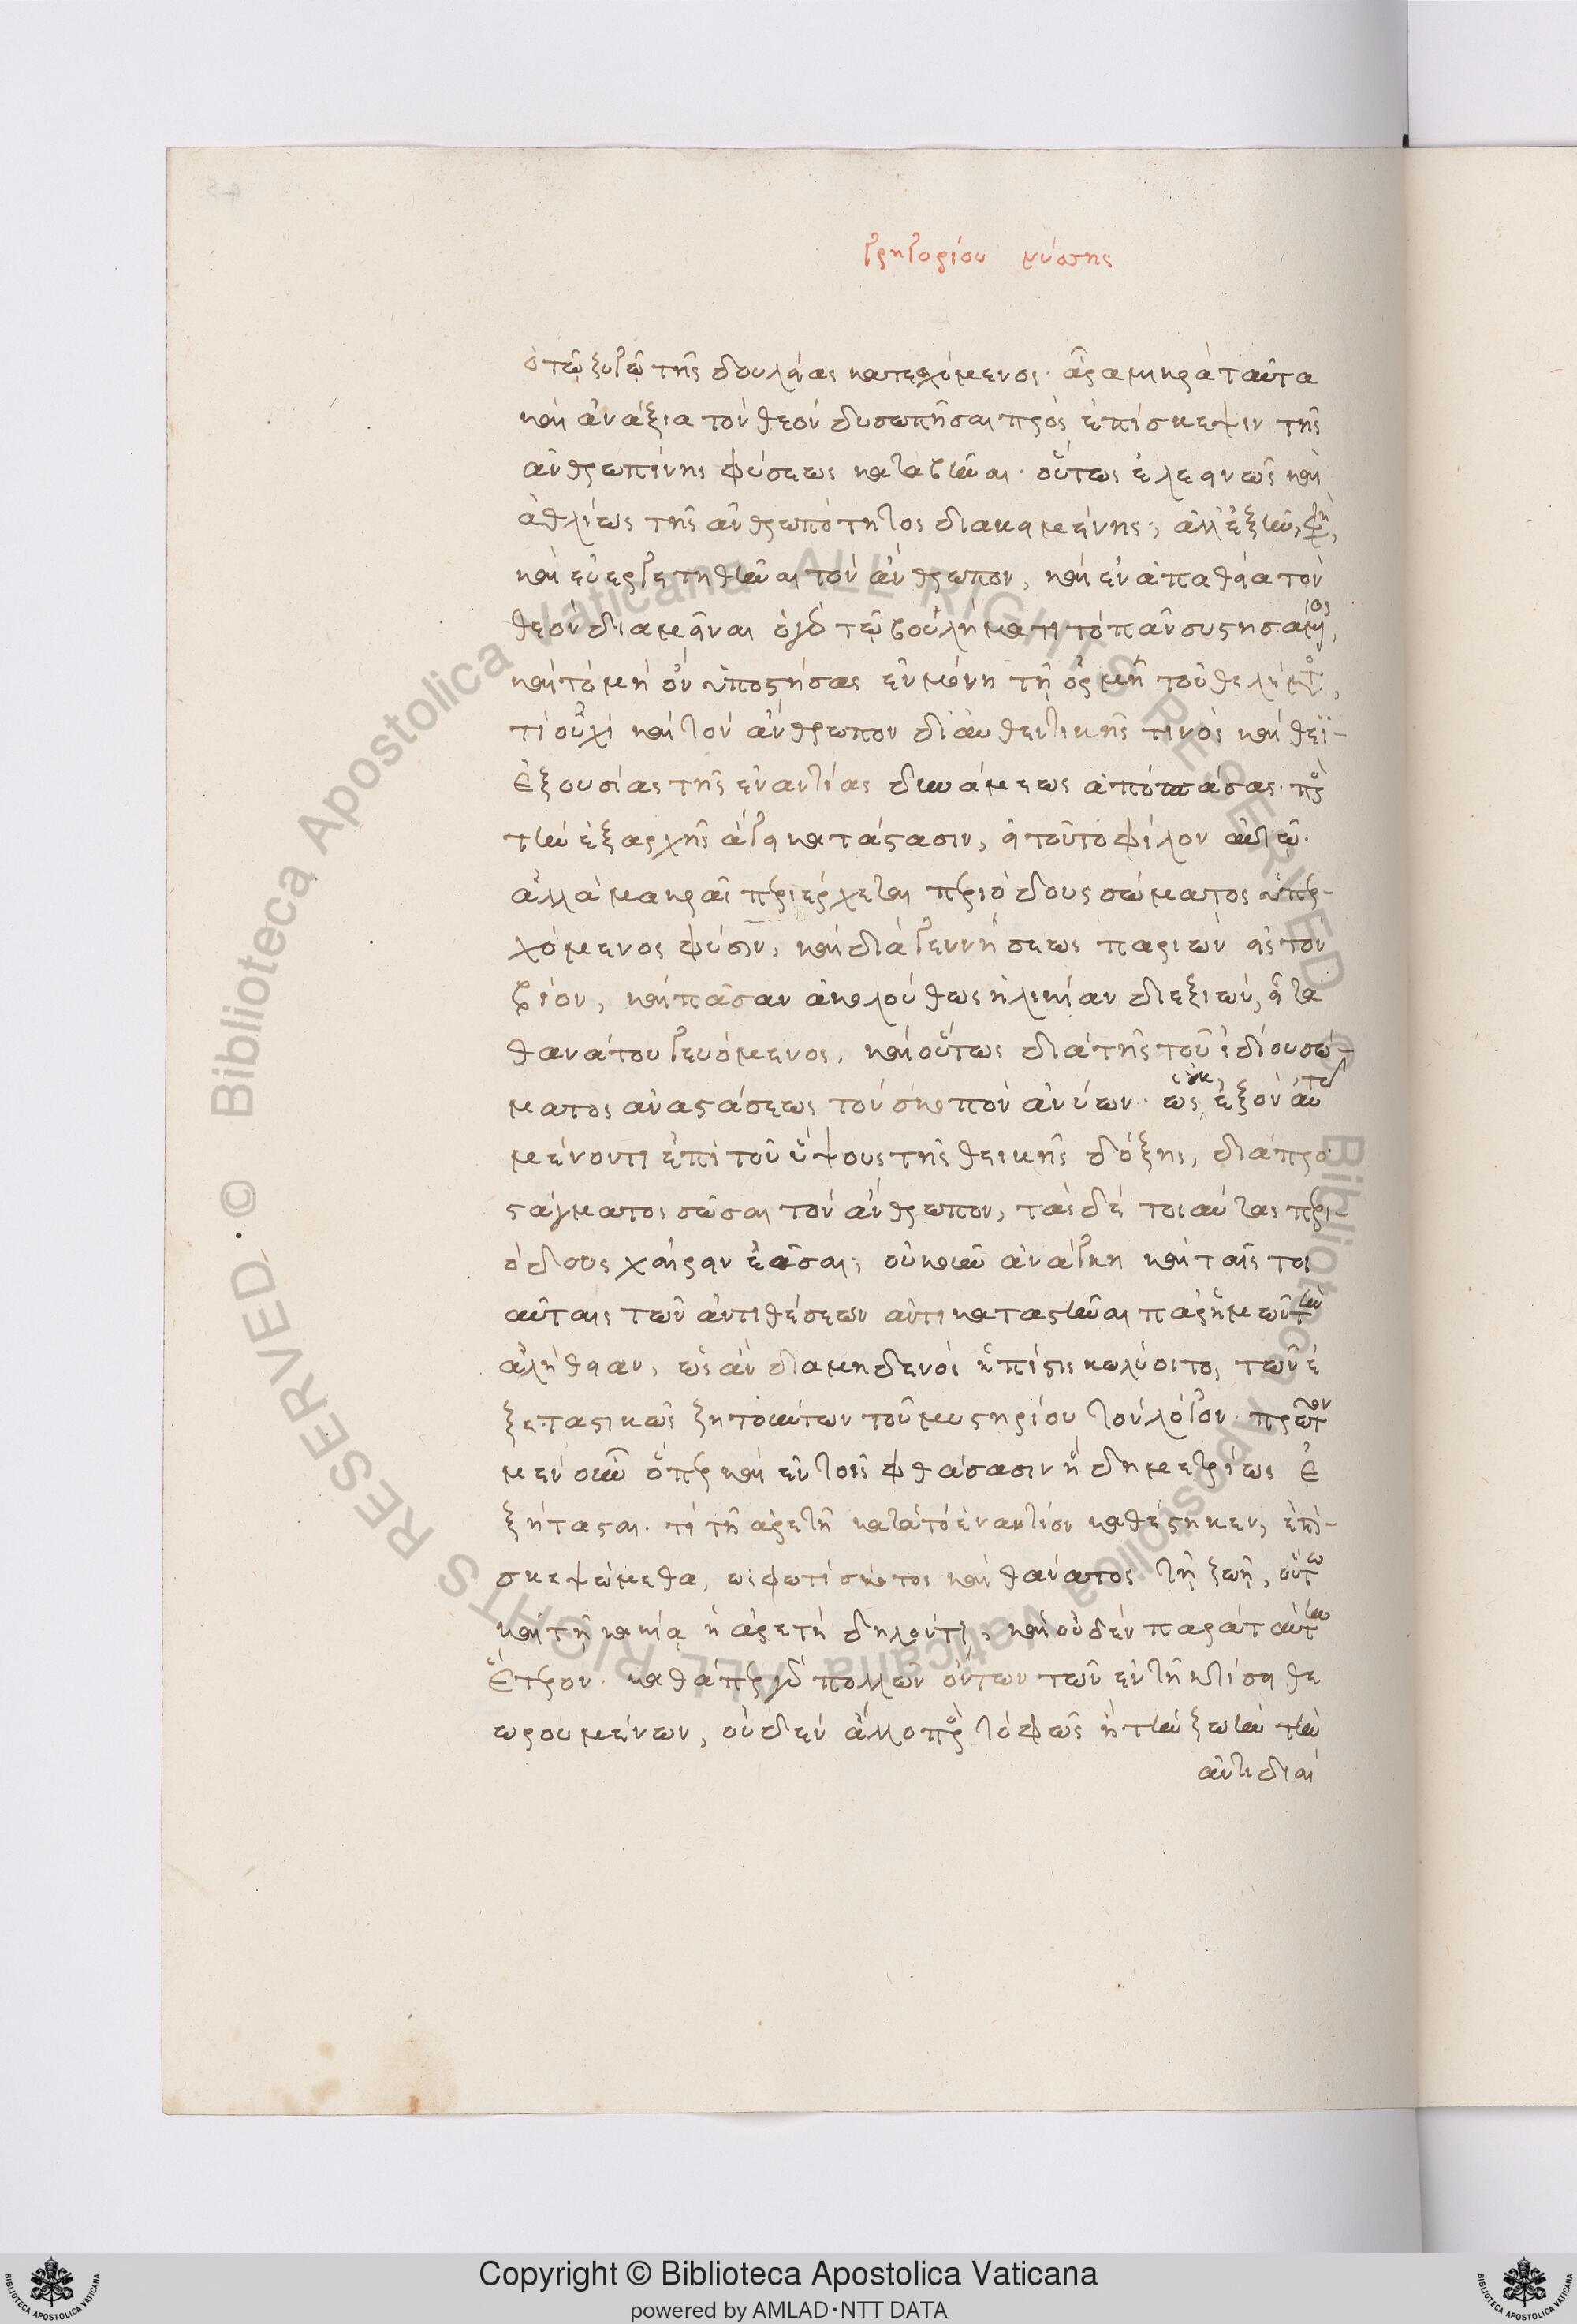 Γρηγορίου νύσσης
ὁ τῷ ζυγῷ τῆς δουλείας κατεχόμενος· ἆρα μικρὰ ταῦτα
καὶ ἀνάξια τὸν θεὸν δυσωπῆσαι πρὸς ἐπίσκεψιν τῆς
ἀνθρωπίνης φύσεως καταβῆναι· οὕτως ἐλεεινῶς καὶ
ἀθλίως τῆς ἀνθρωπότητος διακειμένης; ἀλλ' ἐξῆν, φη,
καὶ εὐεργετηθῆναι τὸν ἄνθρωπον, καὶ ἐν ἀπαθείᾳ τὸν
θεὸν διαμεῖναι ὁ γὰρ τῷ βουλήματι τὸ πᾶν συστησάμενος,
καὶ τὸ μὴ ὂν ὑποστήσας ἐν μόνῃ τῇ ὁρμῇ τοῦ θελήματος,
τί οὐχὶ καὶ τὸν ἄνθρωπον δι' αὐθεντικῆς τινὸς καὶ θεϊ-
ἐξουσίας τῆς ἐναντίας δυνάμεως ἀποσπάσας· πρὸς
τὴν ἐξαρχῆς ἄγει κατάστασιν, εἰ τοῦτο φίλον αὐτῷ·
ἀλλὰ μακρὰς περιέρχεται περιόδους σώματος ὑπερ-
χόμενος φύσιν, καὶ διὰ γεννήσεως παριὼν εἰς τὸν
βίον, καὶ πᾶσαν ἀκολούθως ἡλικίαν διεξιών, εἶτα
θανάτου γευόμενος, καὶ οὕτως διὰ τῆς τοῦ ἰδίου σώ-
ματος ἀναστάσεως τὸν σκοπὸν ἀνύων· ὡς οὐκ ἐξὸν αὐτῷ
μένοντι ἐπὶ τοῦ ὕψους τῆς θεικῆς δόξης, διὰ προ
στάγματος σῶσαι τὸν ἄνθρωπον, τὰς δὲ τοιαύτας περι-
όδους χαίρειν ἐᾶσαι; οὐκοῦν ἀνάγκη καὶ ταῖς τοι
αύταις τῶν ἀντιθέσεων ἀντικαταστῆναι παρ' ἡμῶν τὴν
ἀλήθειαν, ὡς ἂν διαμηδενὸς ἡ πίστις κωλύοιτο, τῶν ἐ
ξεταστικῶς ζητούντων τοῦ μυστηρίου τὸν λόγον· πρῶτον
μὲν οὖν ὅπερ καὶ ἐν τοῖς φθάσασιν ἤδη μετρίως ἐ
ξήτασται. τί τῇ ἀρετῇ κατὰ τὸ ἐναντίον καθέστηκεν, ἐπι-
σκεψώμεθα, ὡς φωτὶ σκότος καὶ θάνατος τῇ ζωῇ, οὕτω
καὶ τῇ κακίᾳ ἡ ἀρετὴ δηλονότι, καὶ οὐδὲν παρὰ ταύτην
ἕτερον. καθάπερ γὰρ πολλῶν ὄντων τῶν ἐν τῇ κτίσει θε
ωρουμένων, οὐδὲν ἄλλο πρὸς τὸ φῶς ἢ τὴν ζωὴν τὴν
ἀντιδιαί